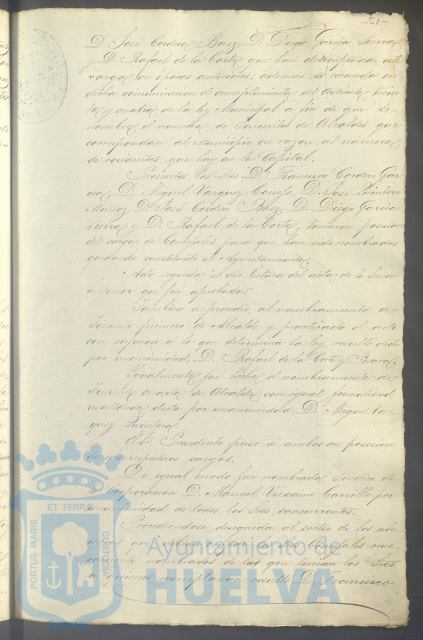 -51-
D. José Cordero Baez, D. Diego García Sierra
y D. Rafael de la Corte, que han desempeñado este
cargo en épocas anteriores; ademas se
dicha comunicacion el cumplimiento del Articulo trein
ta y cuatro de la ley Municipal a fin de que se
nombre el numero de Tenientes de Alcaldes que
correspondan al Municipio en razon al numero
de recidentes que hay en la Capital.
Presentes los Sres. D. Francisco Cordero Gar
cia, D. Miguel Vazquez D. José Quintero
Muñoz, D. José Cordero Baez, D. Diego García
Sierra y D. Rafael de la Corte, tomaron posesion
del cargo de Concejales para que han sido nombrados
quedando constituido el Ayuntamiento.
Acto seguido se dio lectura del acta de la
anterior que fue aprobada.
Tambien se procedio al nombramiento de
Teniente primero de Alcalde y practicado el acto
con a lo que determina la ley resultó electo
por unanimidad, D. Rafael de la Corte y Bravo.
Igualmente fue hecho el nombramiento de
Teniente cuarto de Alcalde con igual formalidad
resultando electo por unanimidad D. Miguel Vaz
quez Quintero.
El Sr. Presidente puso a ambos en posesion
de sus respectivos cargos.
De igual modo fue nombrado Sindico de
la Corporacion D. Manuel Vizcaino Carrillo por
unanimidad de todos los Sres. concurrentes.
Procediendose deseguida al sorteo de los
que
nombrados de las que tenian los Sres
a quienes remplazan resultó D. Francisco
PORTUS MARIS
ET TERRÆ
CUSTODIA
Ayuntamiento de
HUELVA